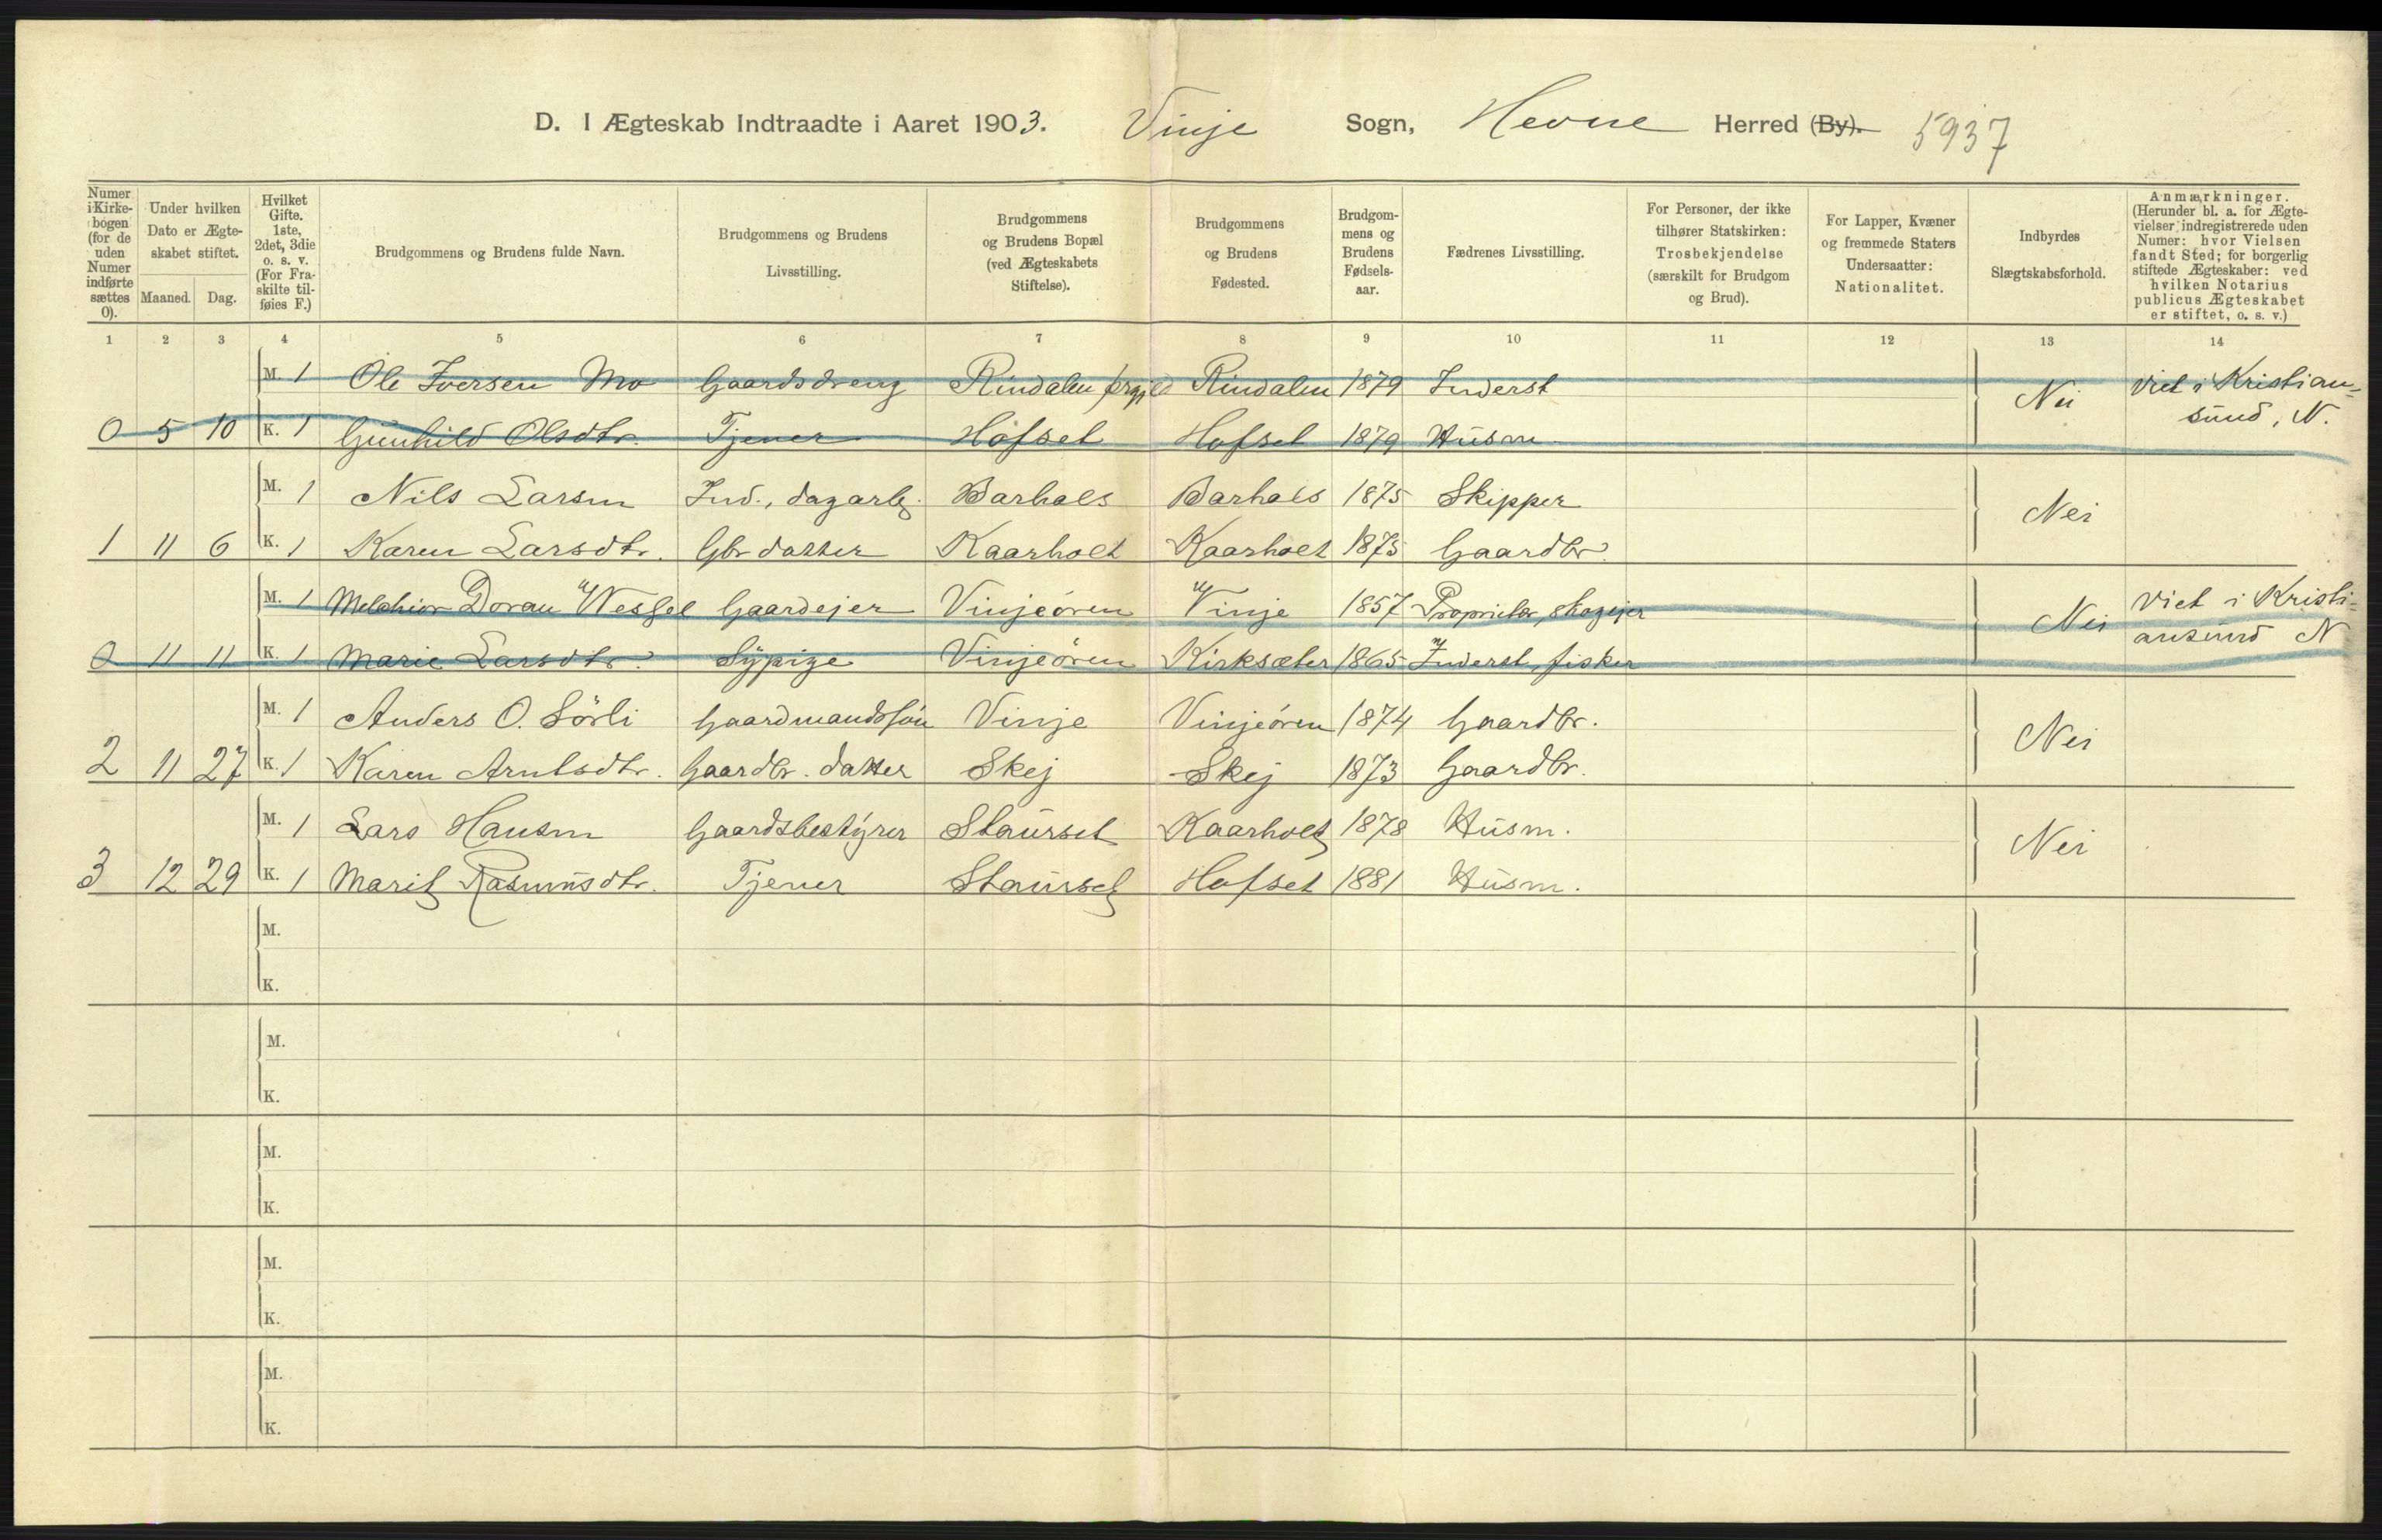 D. I Ægteskab Indtraadte i Aaret 1903. Vinje Sogn, Hevne Herred (By). 5937
Numer i Kirkebogen (for de uden Numer indførte sættes 0).
Under hvilken Dato er Ægteskabet stiftet.
Maaned. Dag.
Hvilket Gifte. 1ste, 2det, 3die o. s. v. (For Fraskilte tilføies F.)
Brudgommens og Brudens fulde Navn.
Brudgommens og Brudens Livsstilling.
Brudgommens og Brudens Bopæl (ved Ægteskabets Stiftelse).
Brudgommens og Brudens Fødested.
Brudgommens og Brudens Fødselsaar.
Fædrenes Livsstilling.
For Personer, der ikke tilhører Statskirken: Trosbekjendelse (særskilt for Brudgom og Brud).
For Lapper, Kvæner og fremmede Staters Undersaatter: Nationalitet.
Indbyrdes Slægtskabsforhold.
Anmærkninger. (Herunder bl. a. for Ægtevielser indregistrerede uden Numer: hvor Vielsen fandt Sted; for borgerlig stiftede Ægteskaber: ved hvilken Notarius publicus Ægteskabet er stiftet, o. s. v.)
1 2 3 4 5 6 7 8 9 10 11 12 13 14
M. 1 Ole Iversen Mo Gaardsdreng Rindalen prgjld Rindalen 1879 Inderst Nei viet i Kristian=
0 5 10 K. 1 Gunhild Olsdtr. Tjener Hofset Hofset 1879 Husm. sund, N.
M. 1 Nils Larsen Ind., dagarb. Barhals Barhals 1875 Skipper Nei
1 11 6 K. 1 Karen Larsdtr. Gbr datter Kaarholt Kaarholt 1875 Gaardbr.
M. 1 Melchior Doran Wessel Gaardejer Vinjeören Vinje 1857 Proprietær, skogejer Nei Viet i Kristi=
0 11 11 K. 1 Marie Larsdtr. Sypige Vinjeören Kirksæter 1865 Inderst, fisker ansund N
M. 1 Anders O. Sörli Gaardmandssön Vinje Vinjeören 1874 Gaardbr. Nei
2 11 27 K. 1 Karen Arntsdtr. Gaardbr. datter Skej Skej 1873 Gaardbr.
M. 1 Lars Hansen Gaardsbestyrer Staurset Kaarholt 1878 Husm. Nei
3 12 29 K. 1 Marit Rasmusdtr. Tjener Staurset Hofset 1881 Husm.
M.
K.
M.
K.
M.
K.
M.
K.
M.
K.